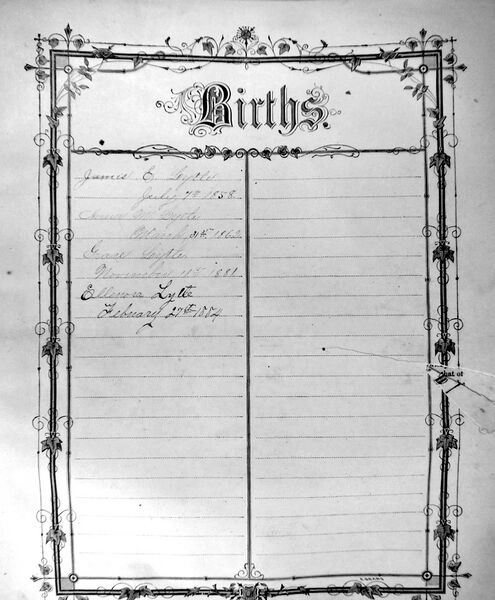 Births.
James E. Lytle
July 7th 1858.
Anna M. Lytle
March 21st 1862
Grace Lytle
November 11th 1881
Ellenora Lytle
Febuary 27th 1884
that of